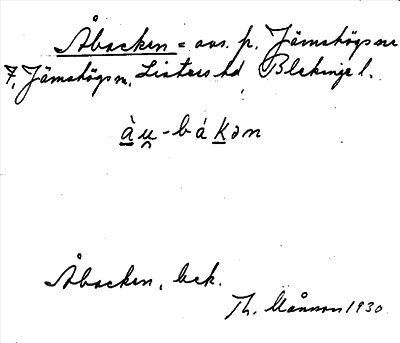 Åbacken = avs. p. Jämshögs nr
7, Jämshögs sn, Listers hd, Blekinge l.
à̲u̯-bákən
Åbacken, bek.
Th. Månsson 1930